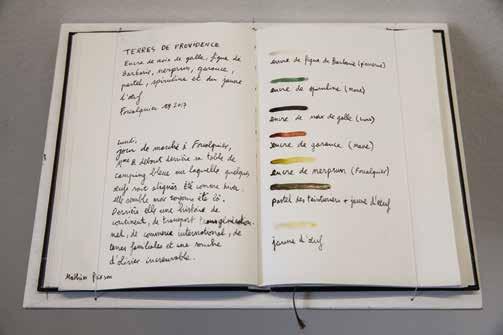 TERRES DE PROVIDENCE
Encre de noix de galle, figue de
Barbarie, nerprun, garance,
pastel, spiruline et du jaune
d'œuf
Forcalquier 2017
Lundi,
jour de marché à Forcalquier,
B debout derrière sa table de
camping bleue sur laquelle quelques
œufs sont alignés été comme hiver.
elle semble avoir toujours été là.
Derrière elle une histoire de
continent, de transport
nel, de commerce international, de
terres familiales et une souche
d'olivier increvable.
Mathieu
encre de figue de Barbarie
encre de spiruline (mare)
encre de noix de galle
encre de garance (mare)
encre de nerprun (Forcalquier)
pastel des teinturiers + jaune d'œuf
jaune d'œuf